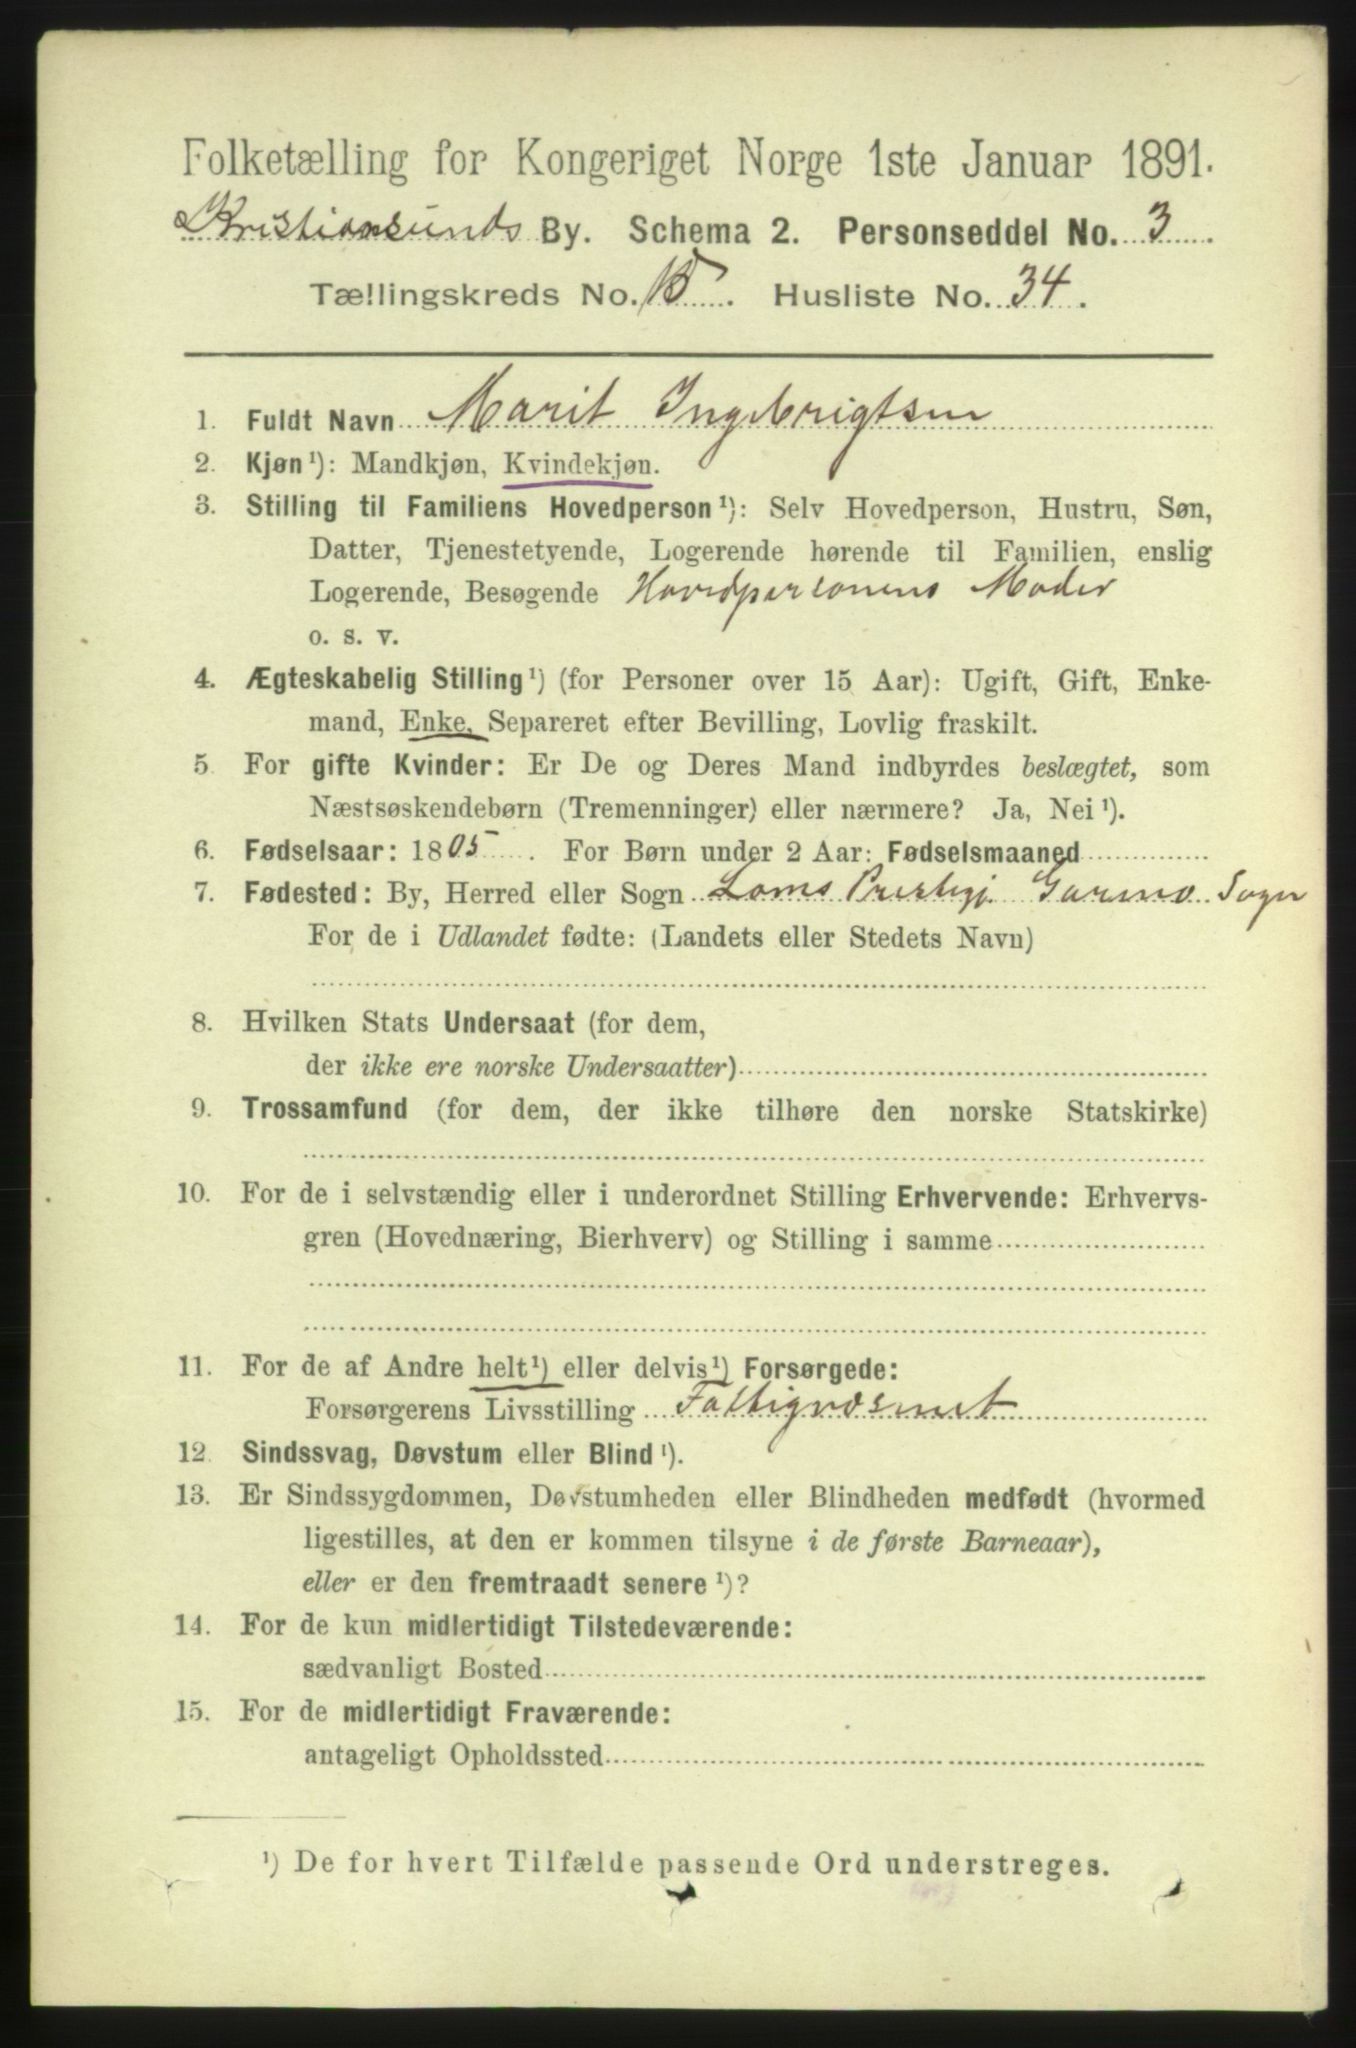 Folketælling for Kongeriget Norge 1ste Januar 1891.
Kristiansunds By. Schema 2. Personseddel No. 3
Tællingskreds No. 15. Husliste No. 34.
1. Fuldt Navn Marit Ingebrigtsen
2. Kjøn¹): Mandkjøn, Kvindekjøn.
3. Stilling til Familiens Hovedperson¹): Selv Hovedperson, Hustru, Søn,
Datter, Tjenestetyende, Logerende hørende til Familien, enslig
Logerende, Besøgende Hovedpersonens Moder
o. s. v.
4. Ægteskabelig Stilling¹) (for Personer over 15 Aar): Ugift, Gift, Enke-
mand, Enke, Separeret efter Bevilling, Lovlig fraskilt.
5. For gifte Kvinder: Er De og Deres Mand indbyrdes beslægtet, som
Næstsøskendebørn (Tremenninger) eller nærmere? Ja, Nei¹).
6. Fødselsaar: 1805. For Børn under 2 Aar: Fødselsmaaned
7. Fødested: By, Herred eller Sogn Loms Prestegj. Garmo Sogn
For de i Udlandet fødte: (Landets eller Stedets Navn)
8. Hvilken Stats Undersaat (for dem,
der ikke ere norske Undersaatter)
9. Trossamfund (for dem, der ikke tilhøre den norske Statskirke)
10. For de i selvstændig eller i underordnet Stilling Erhvervende: Erhvervs-
gren (Hovednæring, Bierhverv) og Stilling i samme
11. For de af Andre helt¹) eller delvis¹) Forsørgede:
Forsørgerens Livsstilling Fattigvæsenet
12. Sindssvag, Døvstum eller Blind¹).
13. Er Sindssygdommen, Døvstumheden eller Blindheden medfødt (hvormed
ligestilles, at den er kommen tilsyne i de første Barneaar),
eller er den fremtraadt senere¹)?
14. For de kun midlertidigt Tilstedeværende:
sædvanligt Bosted
15. For de midlertidigt Fraværende:
antageligt Opholdssted
¹) De for hvert Tilfælde passende Ord understreges.